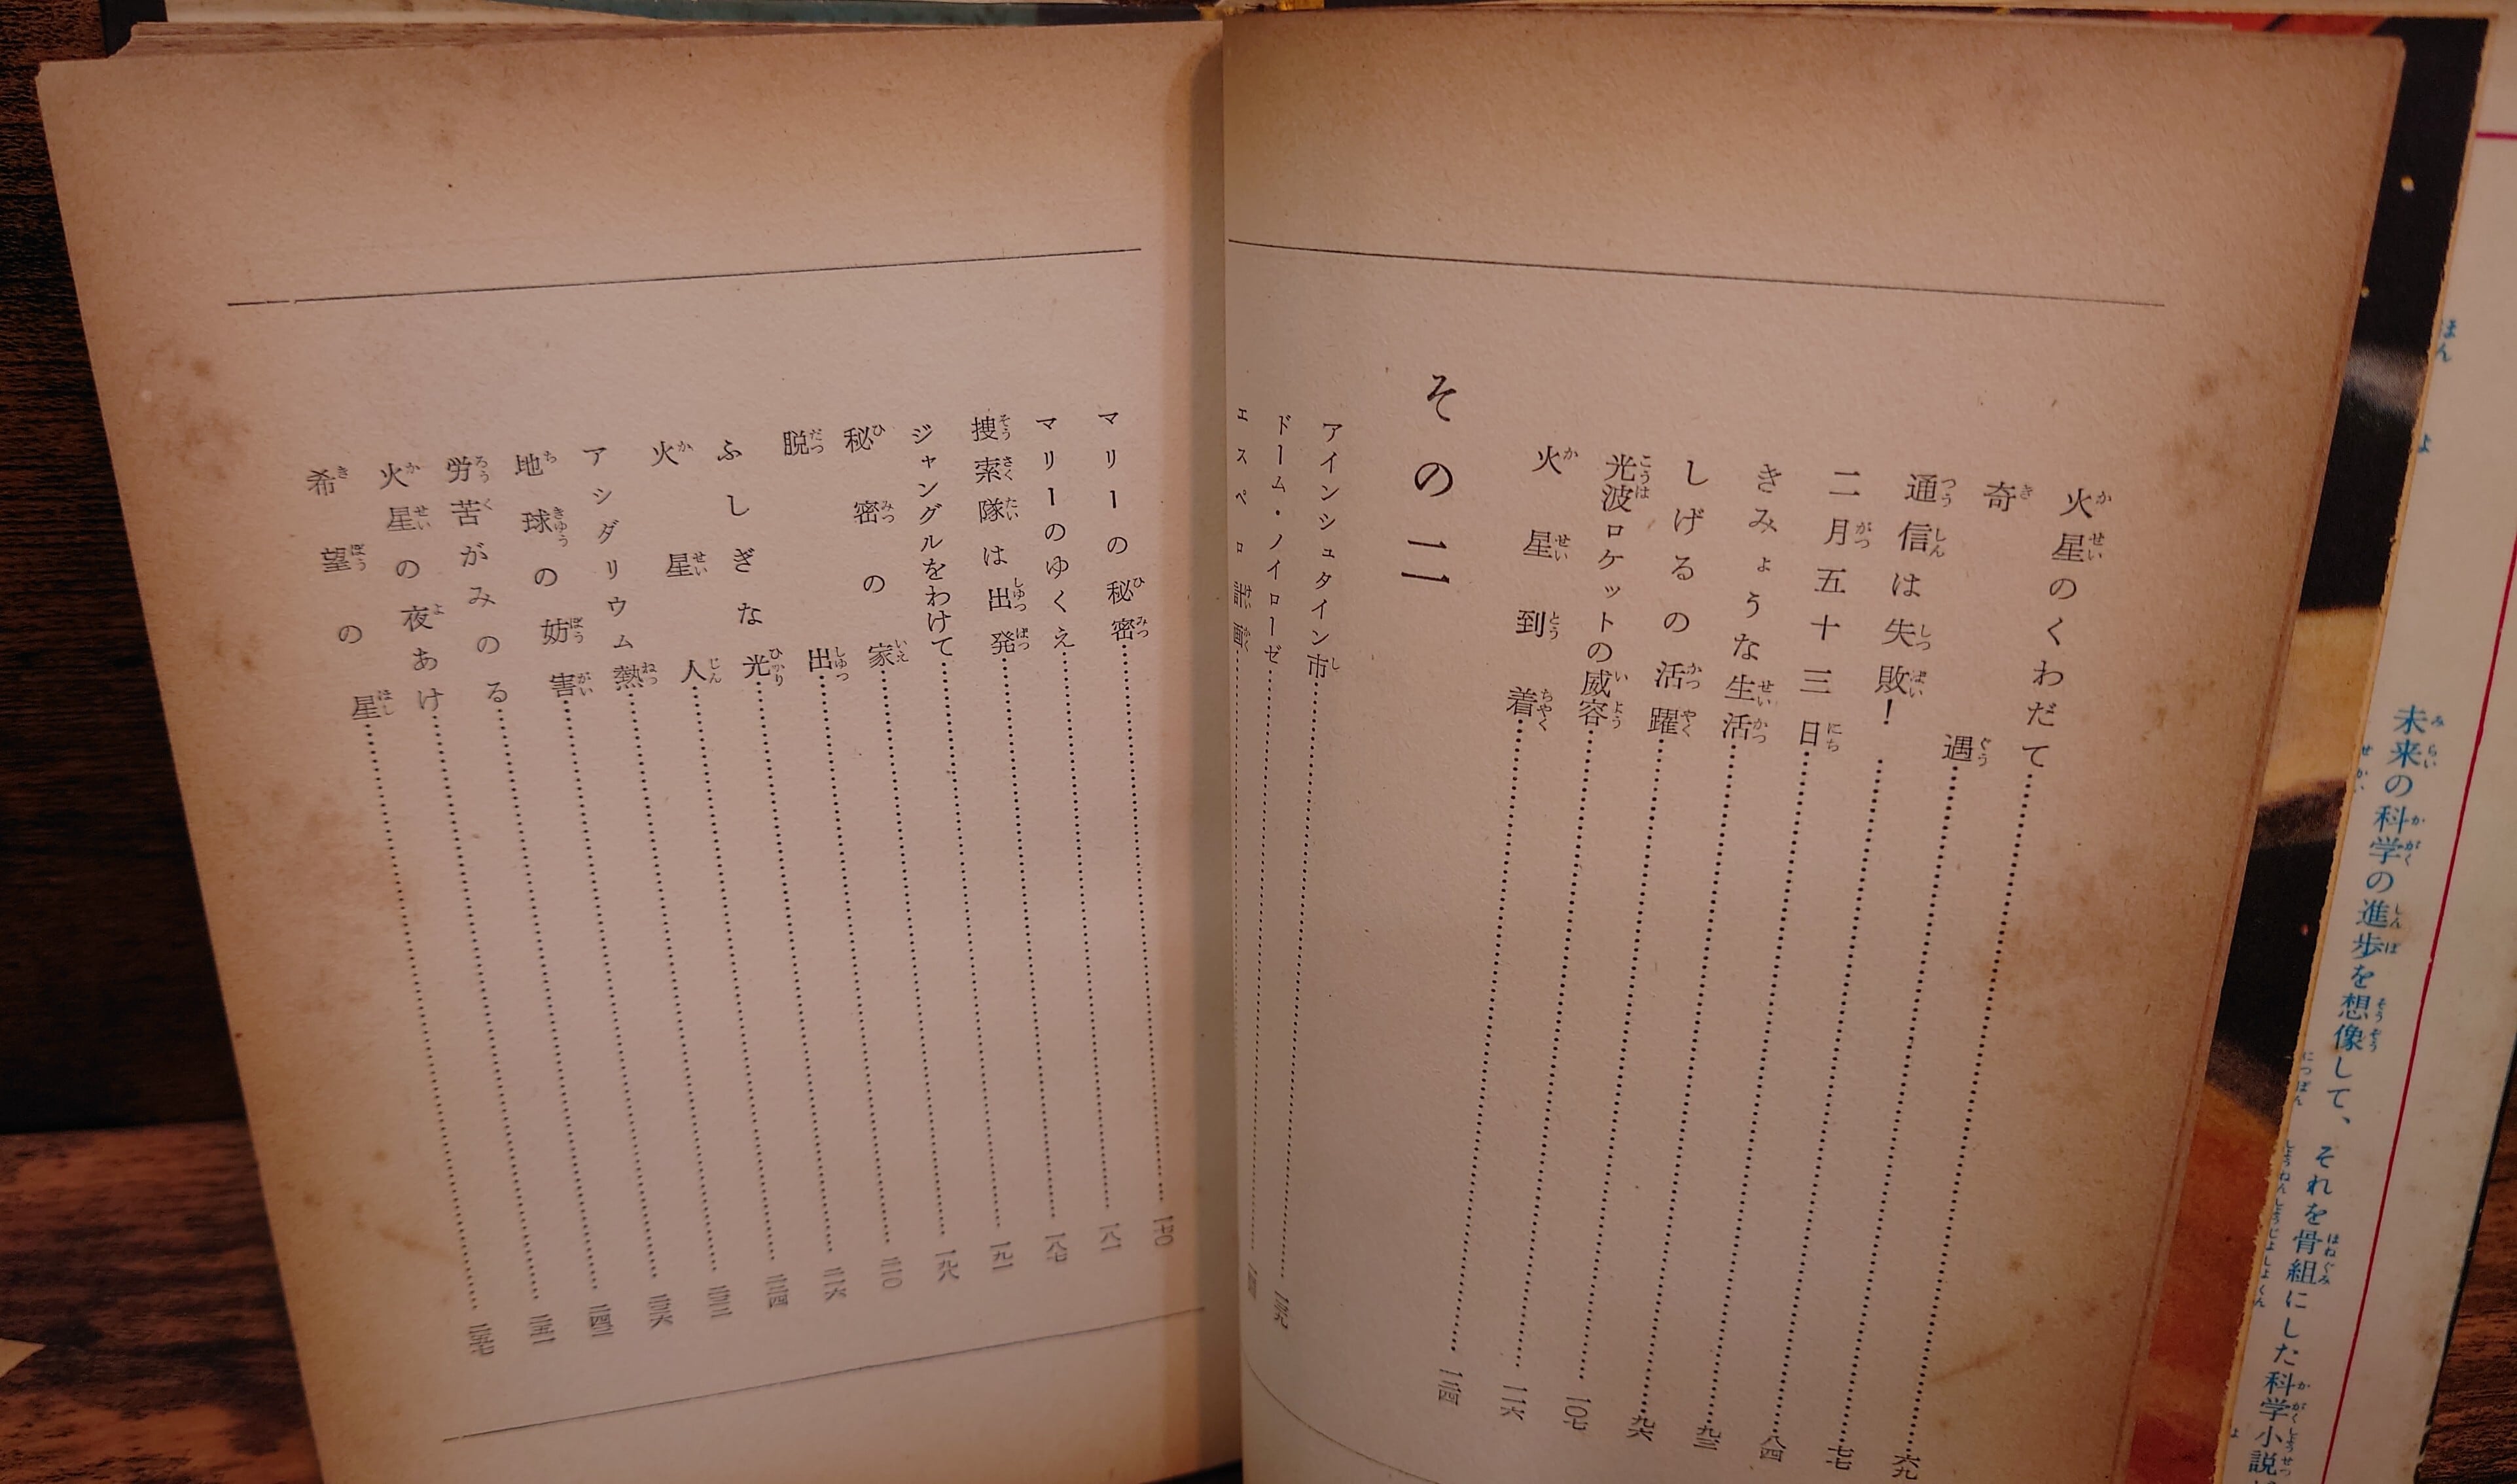 未来の科学の進歩を想像して、それを骨組にした科学小説
火星のくわだて……六九
奇遇……七七
通信は失敗!……八四
二月五十三日……九三
きみょうな生活……九六
しげるの活躍……一〇七
光波ロケットの威容……一一六
火星到着……一二四
その二
アインシュタイン市……一三九
ドーム・ノイローゼ……
エスペロ
マリーの秘密……一七〇
マリーのゆくえ……一八一
捜索隊は出発……一八七
ジャングルをわけて……一九一
秘密の家……一九八
脱出……二一〇
ふしぎな光……二一六
火星人……二二四
アシダリウム熱……二三二
地球の妨害……二三六
労苦がみのる……二四二
火星の夜あけ……二五一
希望の星……二五七